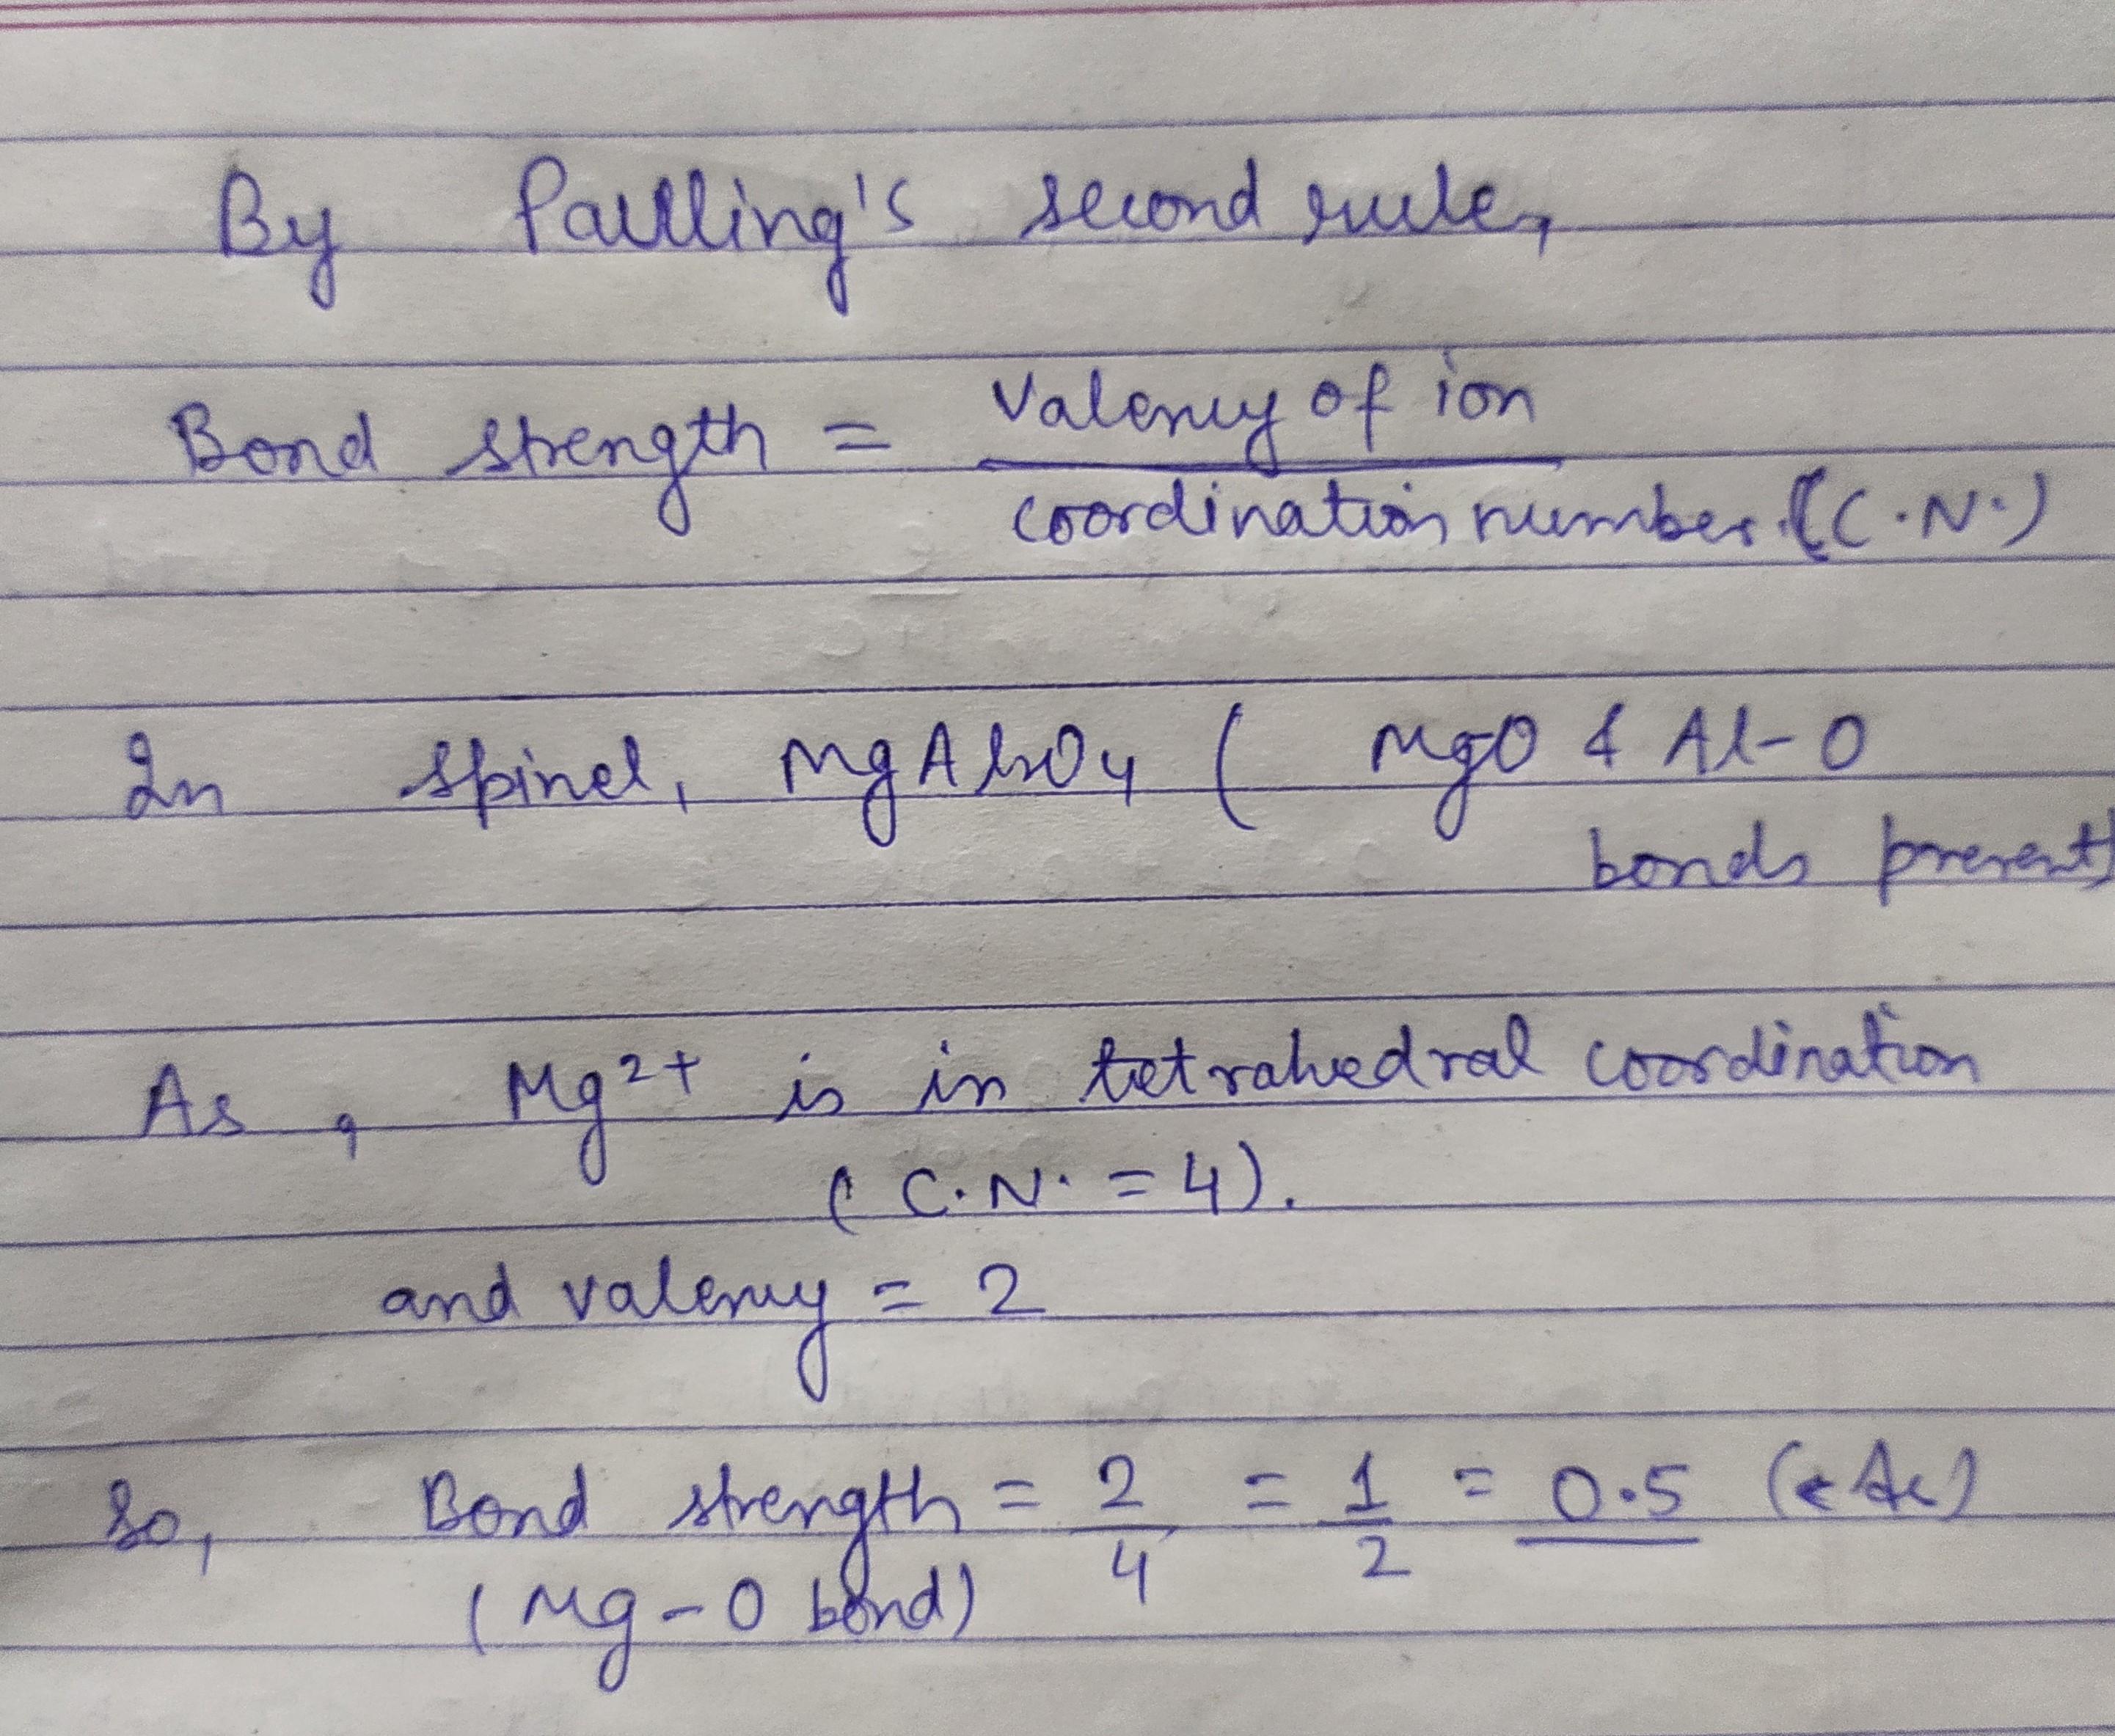 By Paulling's second rule,
Bond strength = Valency of ion
coordination number (C.N.)
In spinel, MgAl2O4 ( MgO & Al-O
bonds present)
As, Mg2+ is in tetrahedral coordination
(C.N. = 4).
and valency = 2
So, Bond strength = 2/4 = 1/2 = 0.5
(Mg-O bond)